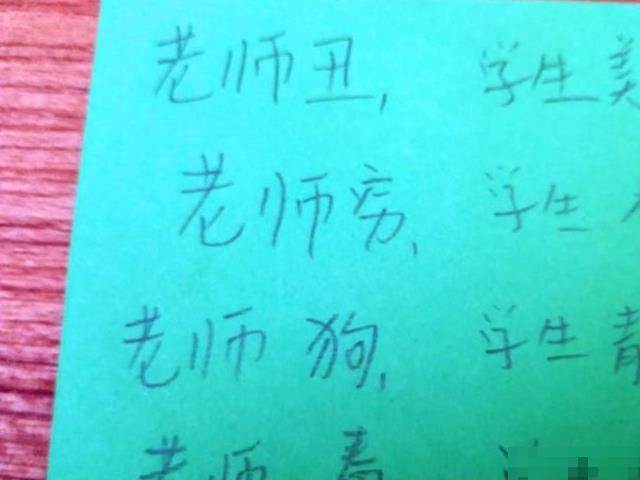 老师丑, 学生美
老师穷, 学生
老师狗, 学生青
老师